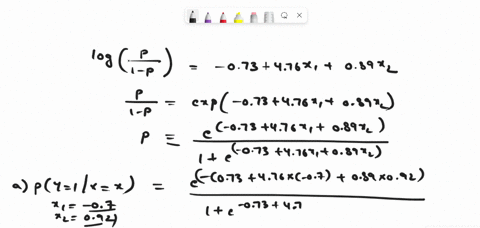 log(p/1-p) = -0.73+4.76x₁ + 0.89x₂
p/1-p = exp(-0.73+4.76x₁ + 0.89x₂)
p = e^(-0.73+4.76x₁ + 0.89x₂) / 1 + e^(-0.73+4.76x₁+0.89x₂)
a) p(Y=1/x=x) = e^(-(0.73 + 4.76x(-0.7) + 0.89x0.92) / 1 + e^-0.73+4.7
x₁ = -0.7
x₂ = 0.92